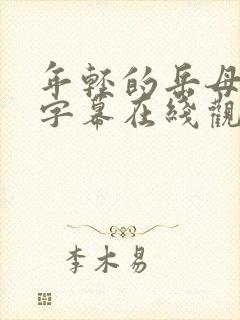 年轻的岳母
字幕在线觀
李木易